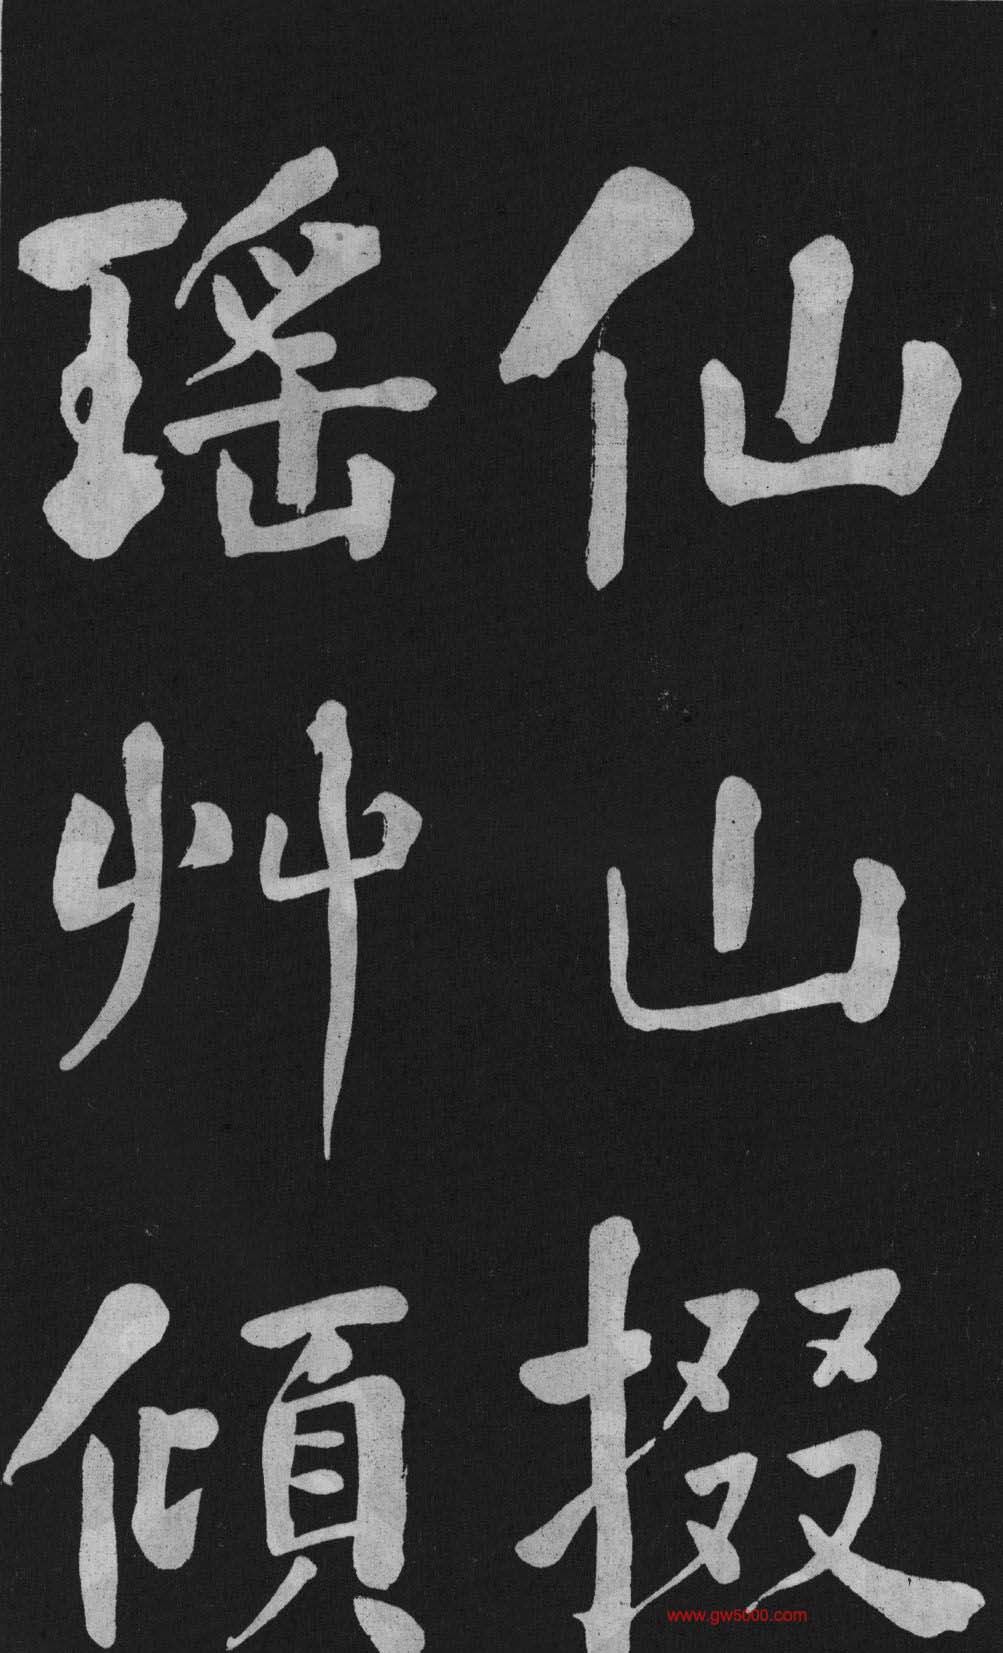 仙山掇
瑶艸傾
www.gw5000.com